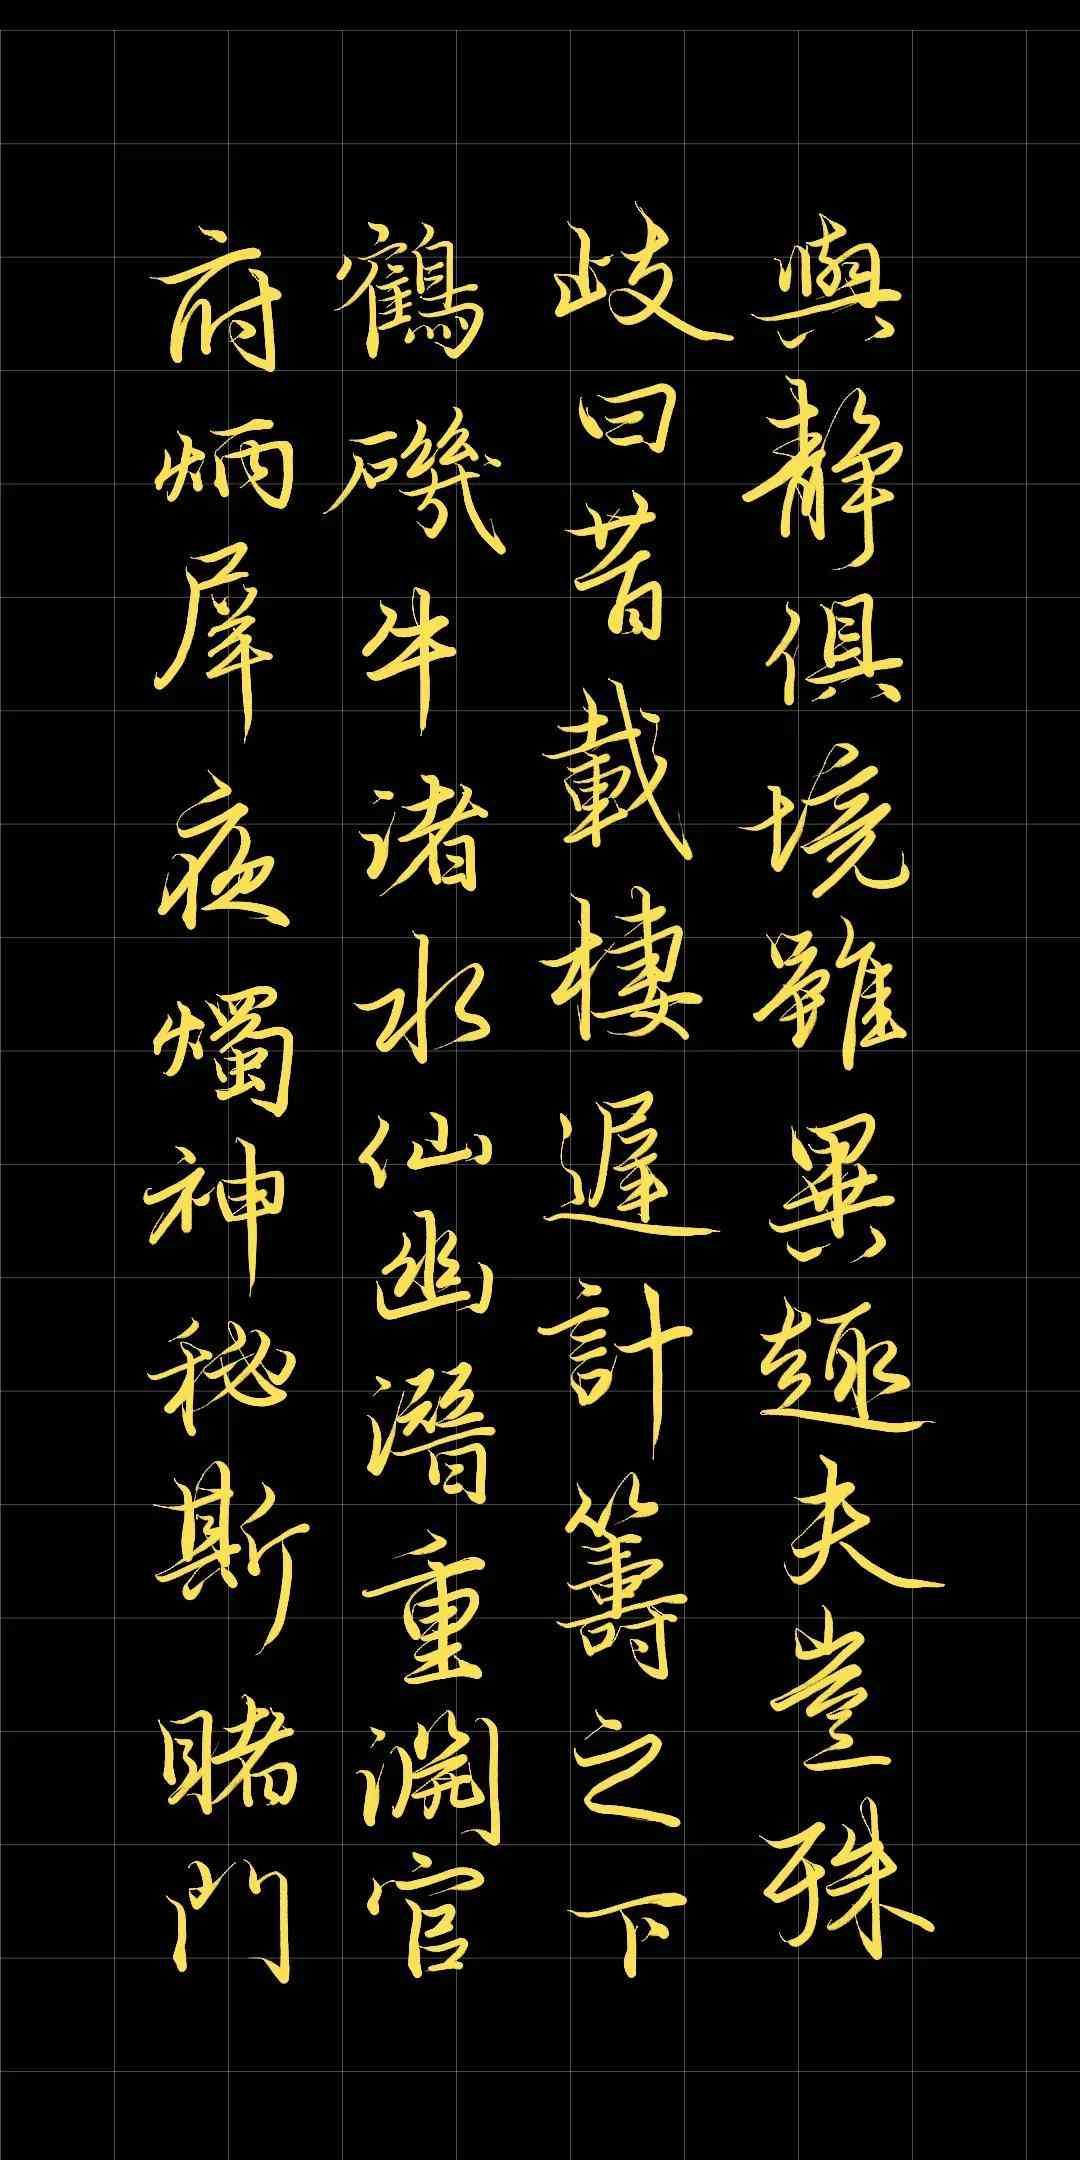 與静俱境雖異趣夫豈殊
歧曰昔載棲遲計籌之下
鶴磯牛渚水仙幽潛重淵官
府炳犀夜燭神秘斯睹門